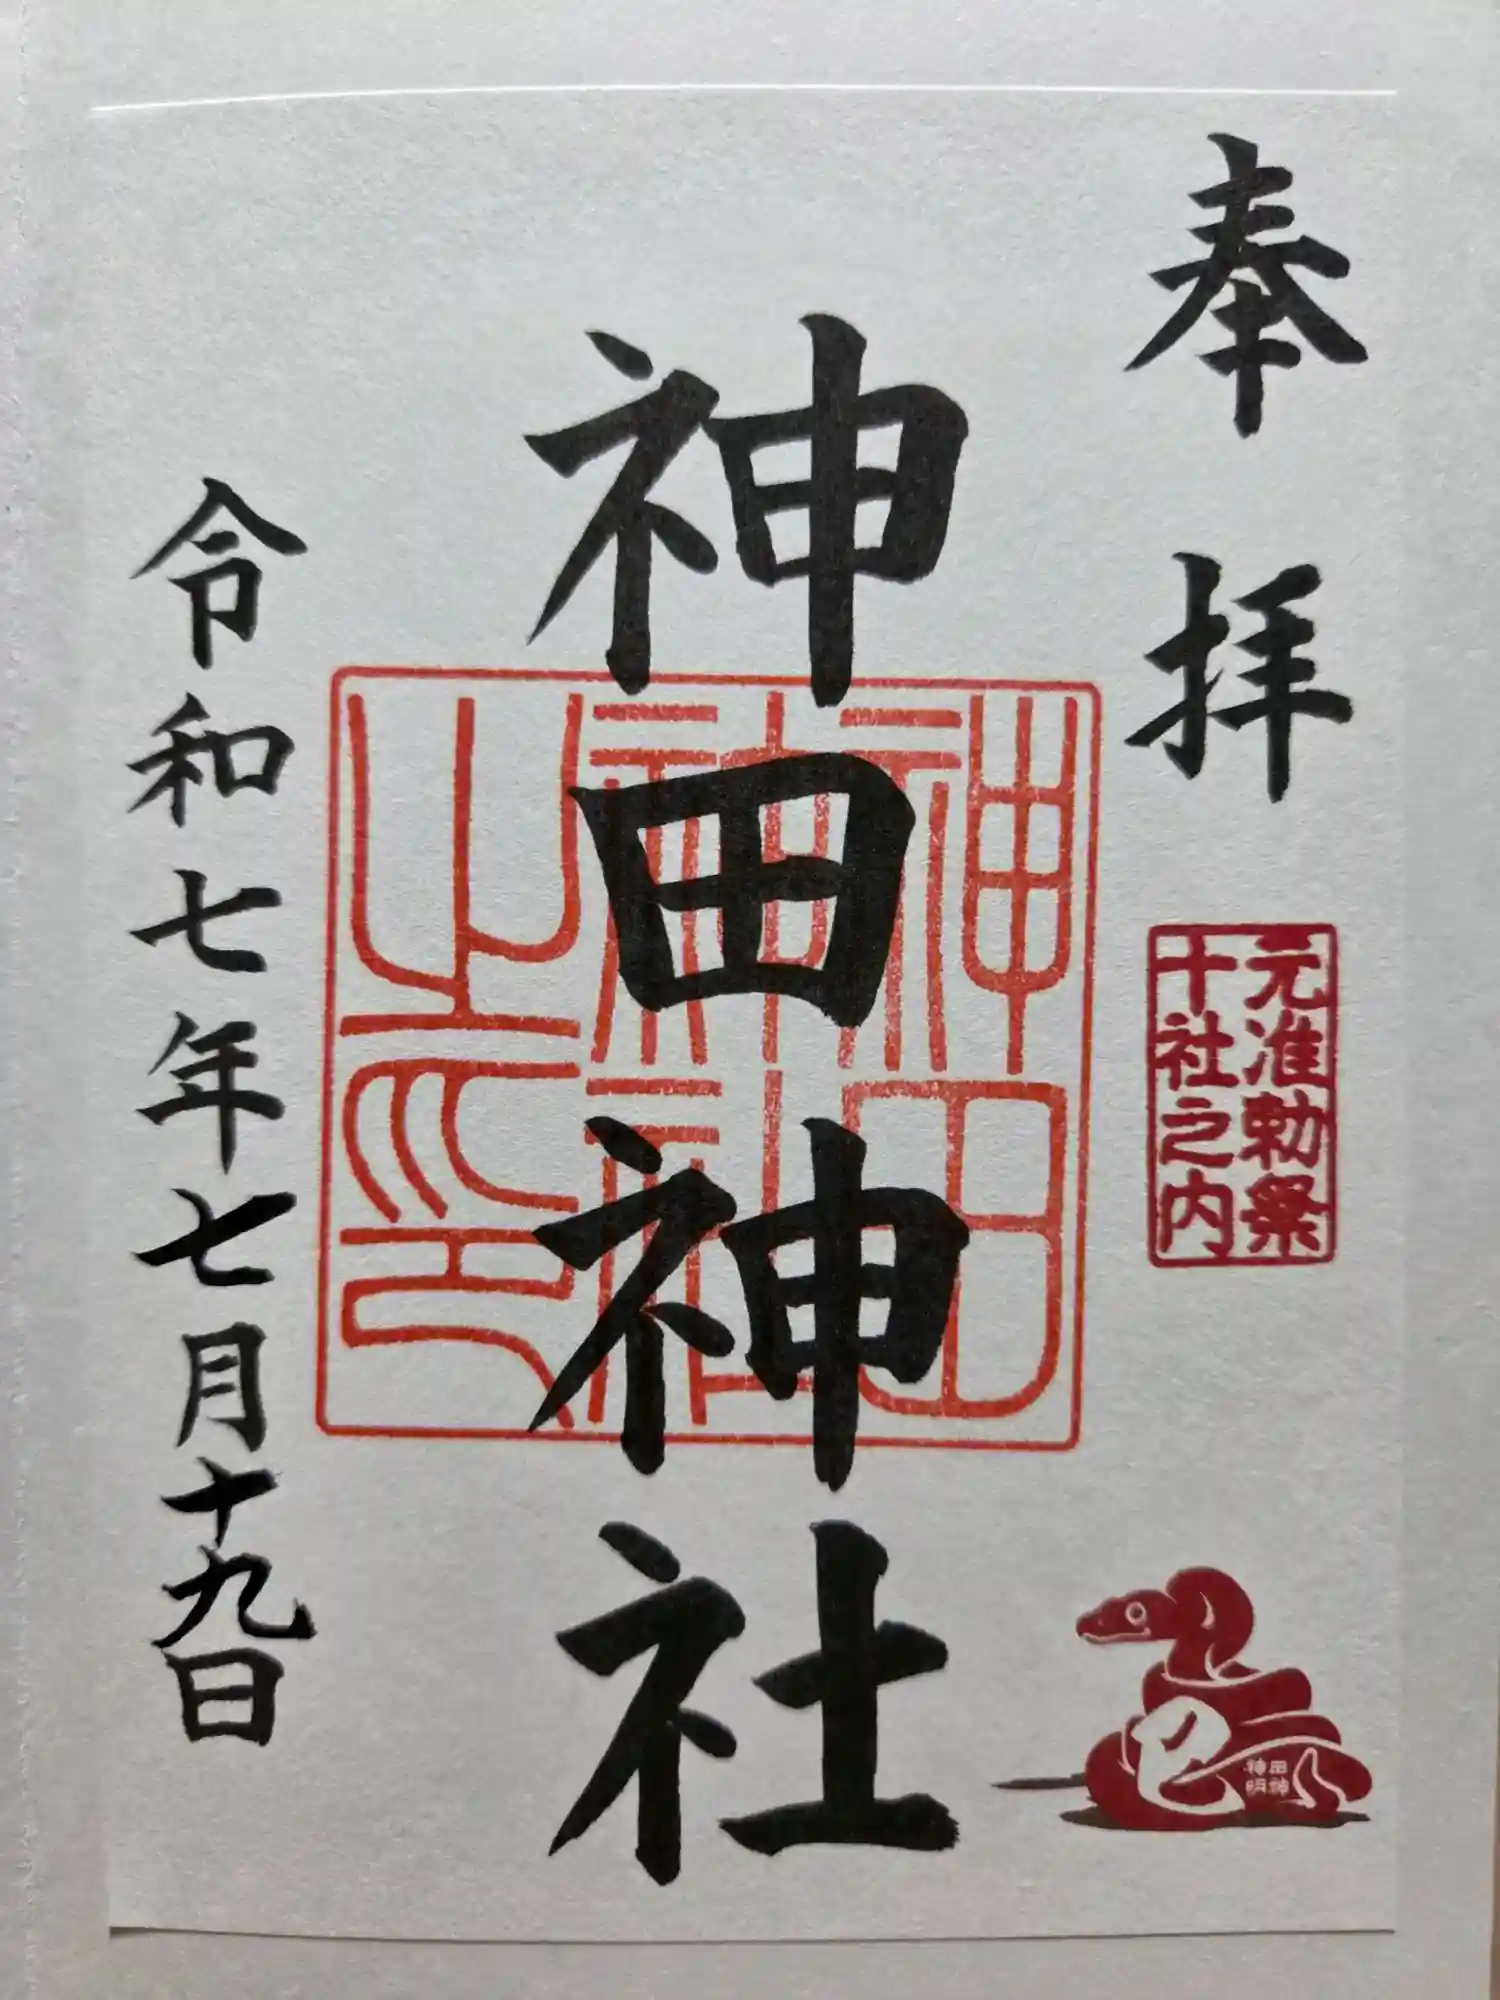 奉拝
元准勅祭
十社之内
巳
神田
神明
神田神社
神田
神社
之印
令和七年七月十九日